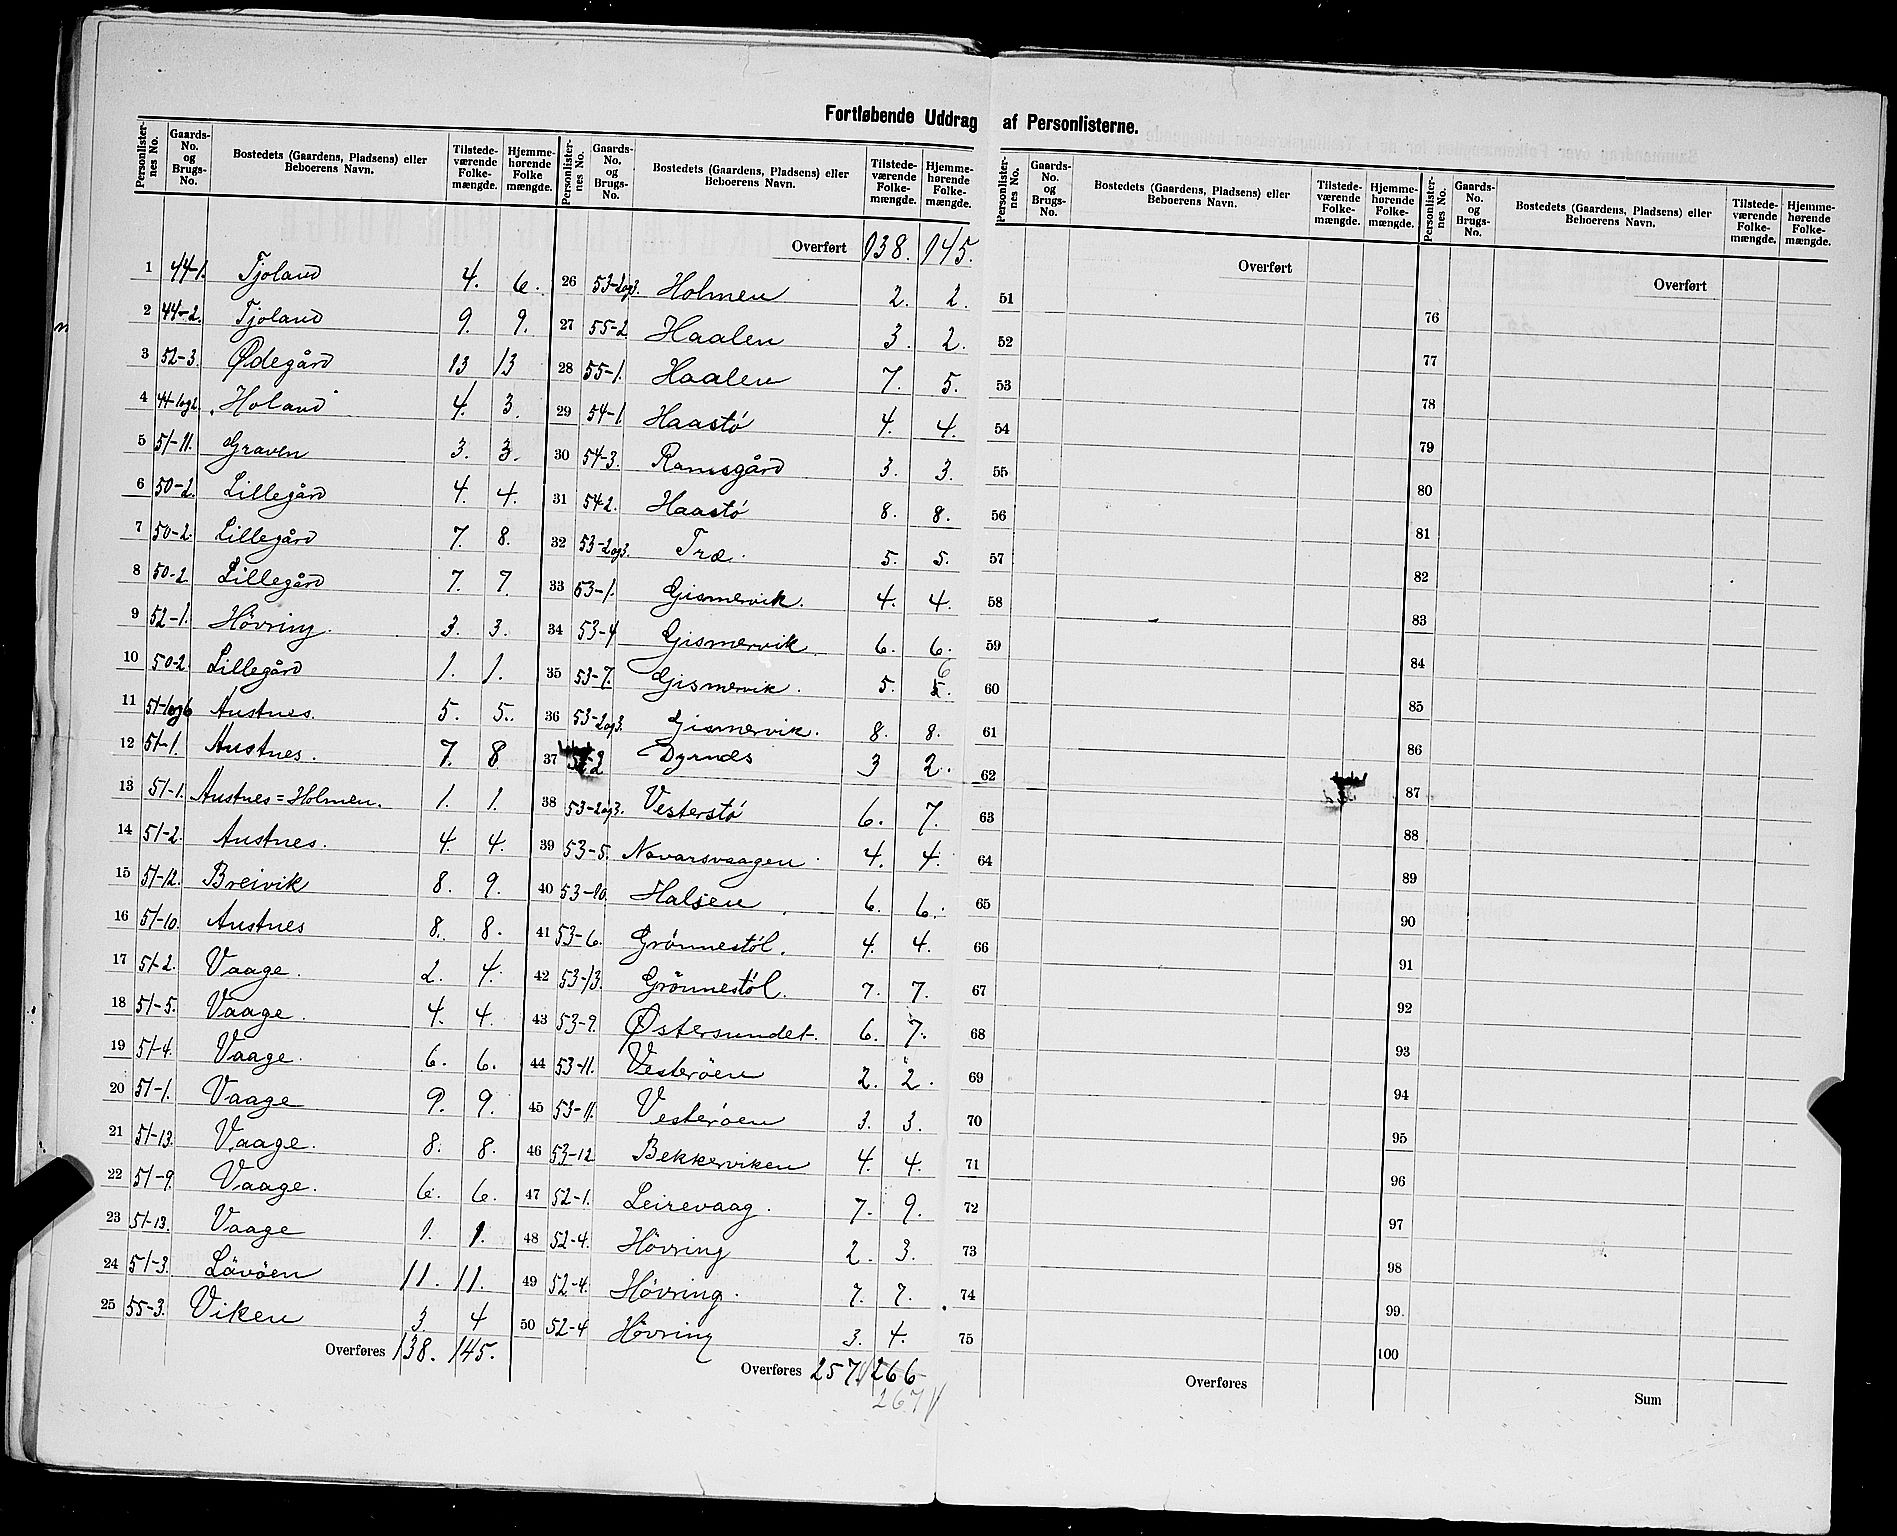 Fortløbende Uddrag af Personlisterne.
Personlister-nes No. | Gaards-No. og Brugs-No. | Bostedets (Gaardens, Pladsens) eller Beboerens Navn. | Tilstede-værende Folke-mængde. | Hjemme-hørende Folke mængde.
1 44-1. Tjoland 4. 6.
2 44-2. Tjoland 9. 9.
3 52-3. Ødegård 13 13
4 44-1og2. Holand 4. 3.
5 51-11. Graven 3. 3.
6 50-2. Lillegård 4. 4.
7 50-2. Lillegård 7. 8.
8 50-2 Lillegård 7. 7.
9 52-1. Hövring. 3. 3.
10 50-2. Lillegård 1. 1.
11 51-1og6 Austnes. 5. 5.
12 51-1. Austnes. 7. 8
13 51-1. Austnes=Holmen. 1. 1.
14 51-2. Austnes. 4. 4.
15 51-12. Breivik 8. 9.
16 51-10. Austnes 8. 8.
17 51-2. Vaage. 2. 4.
18 51-5. Vaage. 4. 4.
19 51-4. Vaage. 6. 6.
20 51-1. Vaage 9. 9.
21 51-13. Vaage. 8. 8.
22 51-9. Vaage. 6. 6.
23 51-13. Vaage 1. 1.
24 51-3. Lövöen 11. 11.
25 55-3. Viken 3. 4
Overføres 138. 145.
Personlister-nes No. | Gaards-No. og Brugs-No. | Bostedets (Gaardens, Pladsens) eller Beboerens Navn. | Tilstede-værende Folke-mængde. | Hjemme-hørende Folke-mængde.
Overført 138. 145.
26 53-2og3. Holmen 2. 2.
27 55-2 Haalen 3. 2.
28 55-1. Haalen 7. 5.
29 54-1. Haastö 4. 4.
30 54-3. Ramsgård 3. 3.
31 54-2. Haastö 8. 8.
32 53-2og3. Træ. 5. 5.
33 53-1. Gismervik. 4. 4.
34 53-4 Gismervik. 6. 6.
35 53-7. Gismervik. 5. 5. 6
36 53-2og3. Gismervik. 8. 8.
37 Dyrnæs 3 2.
38 53-2og3. Vesterstö 6. 7.
39 53-5. Navarsvaagen 4. 4.
40 53-10. Halsen 6. 6.
41 53-6. Grönnestöl. 4. 4.
42 53-13. Grönnestöl. 7. 7.
43 53-9. Østersundet. 6. 7.
44 53-11. Vesteröen 2. 2.
45 53-11. Vesteröen 3. 3.
46 53-12 Bekkerviken 4. 4.
47 52-1. Leirevaag. 7. 9.
48 52-4. Hövring 2. 3.
49 52-4. Hövring. 7. 7.
50 52-4 Hövring 3. 4.
Overføres 257 266
267
Personlister-nes No. | Gaards-No. og Brugs-No. | Bostedets (Gaardens, Pladsens) eller Beboerens Navn. | Tilstede-værende Folke-mængde. | Hjemme-hørende Folke-mængde.
Overført
51
52
53
54
55
56
57
58
59
60
61
62
63
64
65
66
67
68
69
70
71
72
73
74
75
Overføres
Personlister-nes No. | Gaards-No. og Brugs-No. | Bostedets (Gaardens, Pladsens) eller Beboerens Navn. | Tilstede-værende Folke-mængde. | Hjemme-hørende Folke-mængde.
Overført
76
77
78
79
80
81
82
83
84
85
86
87
88
89
90
91
92
93
94
95
96
97
98
99
100
Sum